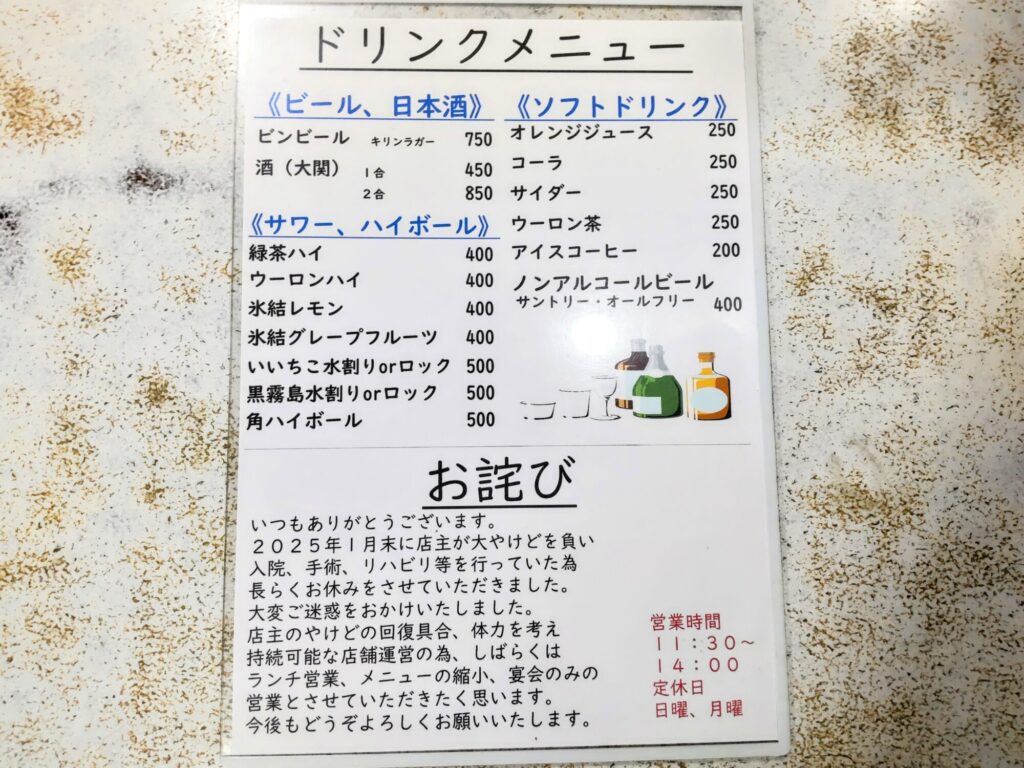 ドリンクメニュー
《ビール、日本酒》
ビンビール キリンラガー 750
酒（大関） 1合 450
2合 850
《サワー、ハイボール》
緑茶ハイ 400
ウーロンハイ 400
氷結レモン 400
氷結グレープフルーツ 400
いいちこ水割りorロック 500
黒霧島水割りorロック 500
角ハイボール 500
《ソフトドリンク》
オレンジジュース 250
コーラ 250
サイダー 250
ウーロン茶 250
アイスコーヒー 200
ノンアルコールビール
サントリー・オールフリー 400
お詫び
いつもありがとうございます。
２０２５年１月末に店主が大やけどを負い
入院、手術、リハビリ等を行っていた為
長らくお休みをさせていただきました。
大変ご迷惑をおかけいたしました。
店主のやけどの回復具合、体力を考え
持続可能な店舗運営の為、しばらくは
ランチ営業、メニューの縮小、宴会のみの
営業とさせていただきたく思います。
今後もどうぞよろしくお願いいたします。
営業時間
１１：３０～
１４：００
定休日
日曜、月曜